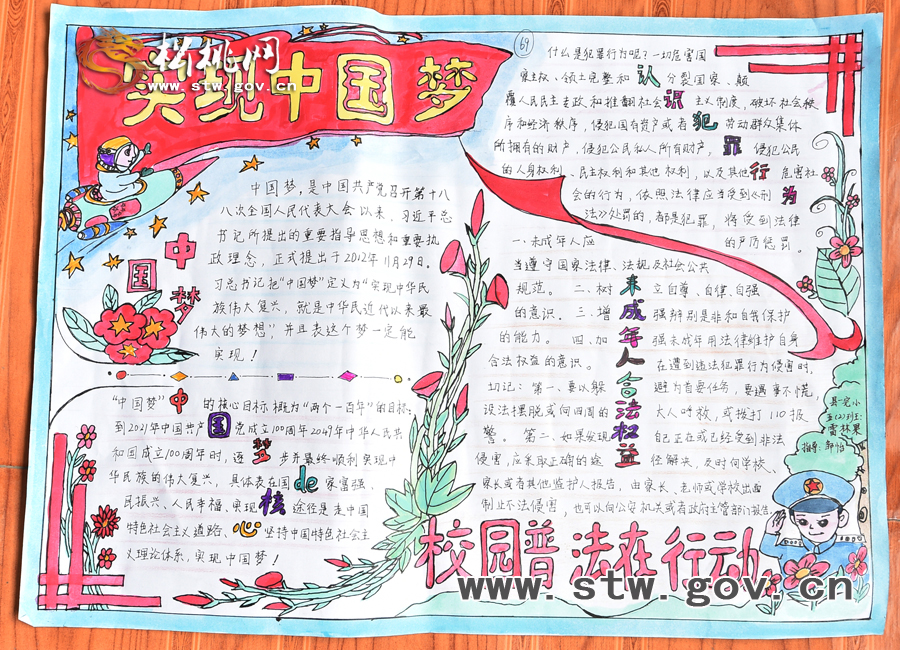 松桃网
www.stw.gov.cn
实现中国梦
中国梦,是中国共产党召开第十八
八次全国人民代表大会以来,习近平总
书记所提出的重要指导思想和重要执
政理念,正式提出于2012年11月29日。
习总书记把“中国梦”定义为“实现中华民
族伟大复兴,就是中华民近代以来最
伟大的梦想”并且表这个梦一定能
实现!
中国梦
“中国梦”的核心目标概为“两个一百年”的目标:
到2021年中国共产党成立100周年2049年中华人民共
和国成立100周年时,逐步并最终顺利实现中
华民族的伟大复兴,具体表在国家富强、
民振兴、人民幸福,实现途径是走中国
特色社会主义道路、坚持中国特色社会主
义理论体系,实现中国梦!
中国梦de核心
69
什么是犯罪行为呢?一切危害国
家主权、领土完整和分裂国家、颠
覆人民民主专政和推翻社会主义制度,破坏社会秩
序和经济秩序,侵犯国有资产或者劳动群众集体
所拥有的财产,侵犯公民私人所有财产,侵犯公民
的人身权利、民主权利和其他权利,以及其他危害社
会的行为,依照法律应当受到《刑
法》处罚的,都是犯罪,将受到法律
的严厉惩罚。
认识犯罪行为
一、未成年人应
当遵守国家法律、法规及社会公共
规范。二、树立自尊、自律、自强
的意识。三、增强辨别是非和自我保护
的能力。四、加强未成年用法律维护自身
合法权益的意识。在遭到违法犯罪行为侵害时,
切记:第一、要以躲避为首要任务,要遇事不慌,
设法摆脱或向四周的大人呼救,或拨打110报
警。第二、如果发现自己正在或已经受到非法
侵害,应采取正确的途径解决,及时向学校、
家长或者其他监护人报告,由家长、老师或学校出面
制止不法侵害,也可以向公安机关或者政府主管部门报告。
未成年人合法权益
县一完小
五(2)班:
雷林果
指导:邹怡
校园普法在行动
www.stw.gov.cn